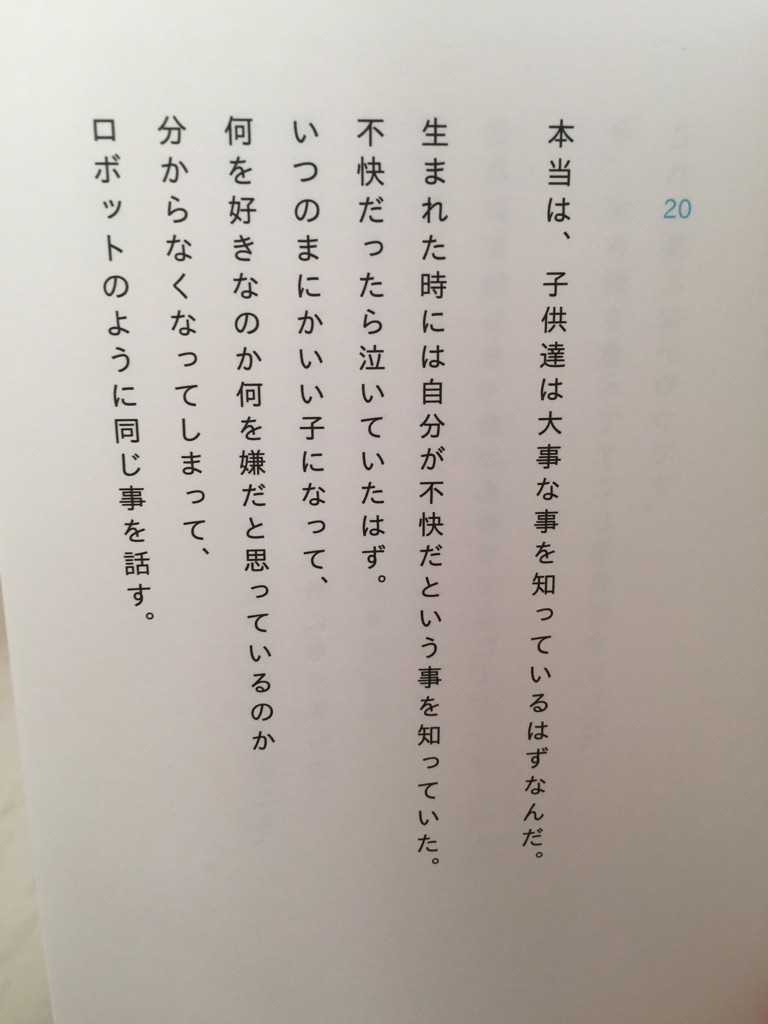 20
本当は、子供達は大事な事を知っているはずなんだ。
生まれた時には自分が不快だという事を知っていた。
不快だったら泣いていたはず。
いつのまにかいい子になって、
何を好きなのか何を嫌だと思っているのか
分からなくなってしまって、
ロボットのように同じ事を話す。